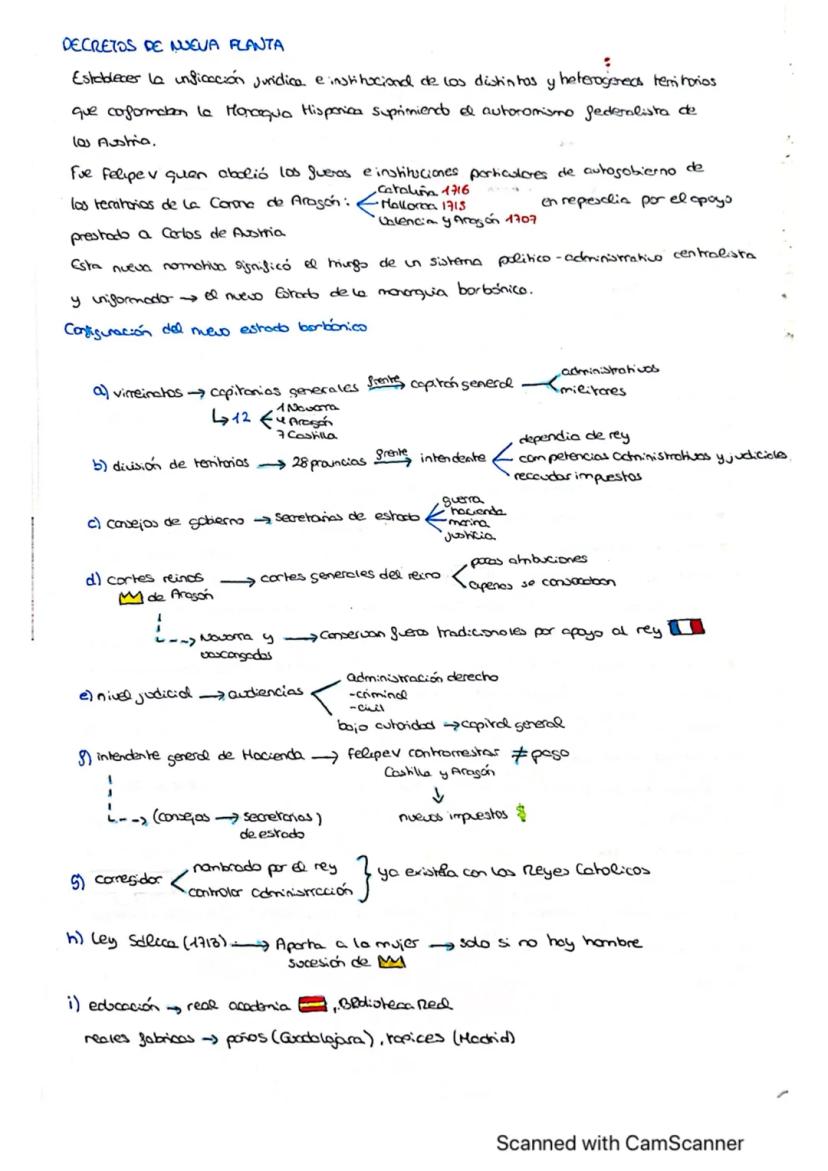 DECRETOS DE NUEVA PLANTA
Establecer la unificación jurídica e institucional de los distintos y heterogeneos territorios
que coformaban la Monaquia Hispanica suprimiendo el autonomismo federalista de
los Austria.
Fue Felipe V quien abolió los fueros e instituciones particulares de autogobierno de
los territorios de la Corona de Aragón: Cataluña 1716 Mallorca 1715 Valencia y Aragón 1707 en represalia por el apoyo
prestado a Carlos de Austria
Esta nueva normativa significó el triunfo de un sistema politico-administrativo centralista
y uniformador → el nuevo Estado de la monarquia borbónica.
Configuración del nuevo estado borbónico
a) virreinatos → capitanias generales frente → capitán general administrativos militares
↳ 12 1 Navarra 4 Aragón 7 Castilla
b) división de territorios → 28 provincias frente → intendente dependia de rey
competencias administrativas y judiciales
recaudar impuestos
c) consejos de gobierno → secretarias de estado guerra hacienda marina justicia
d) cortes reinos → cortes generales del reino pocas atribuciones
de Aragón apenas se convocaban
Navarra y → Conservan fueros tradicionales por apoyo al rey
vascongadas
e) nivel judicial → audiencias administración derecho
-criminal
-civil
bajo autoridad → capital general
f) intendente general de Hacienda → Felipe V contrarrestar ≠ pago
Castilla y Aragón
↓
(consejos → secretarias) nuevos impuestos $
de estado
g) corregidor nombrado por el rey } ya existía con los Reyes Catolicos
controlar administración
h) Ley Sálica (1713) → Aparta a la mujer → solo si no hay hombre
sucesión de
i) educación → real academia , Biblioteca Real
reales fabricas → paños (Guadalajara), tapices (Madrid)
Scanned with CamScanner